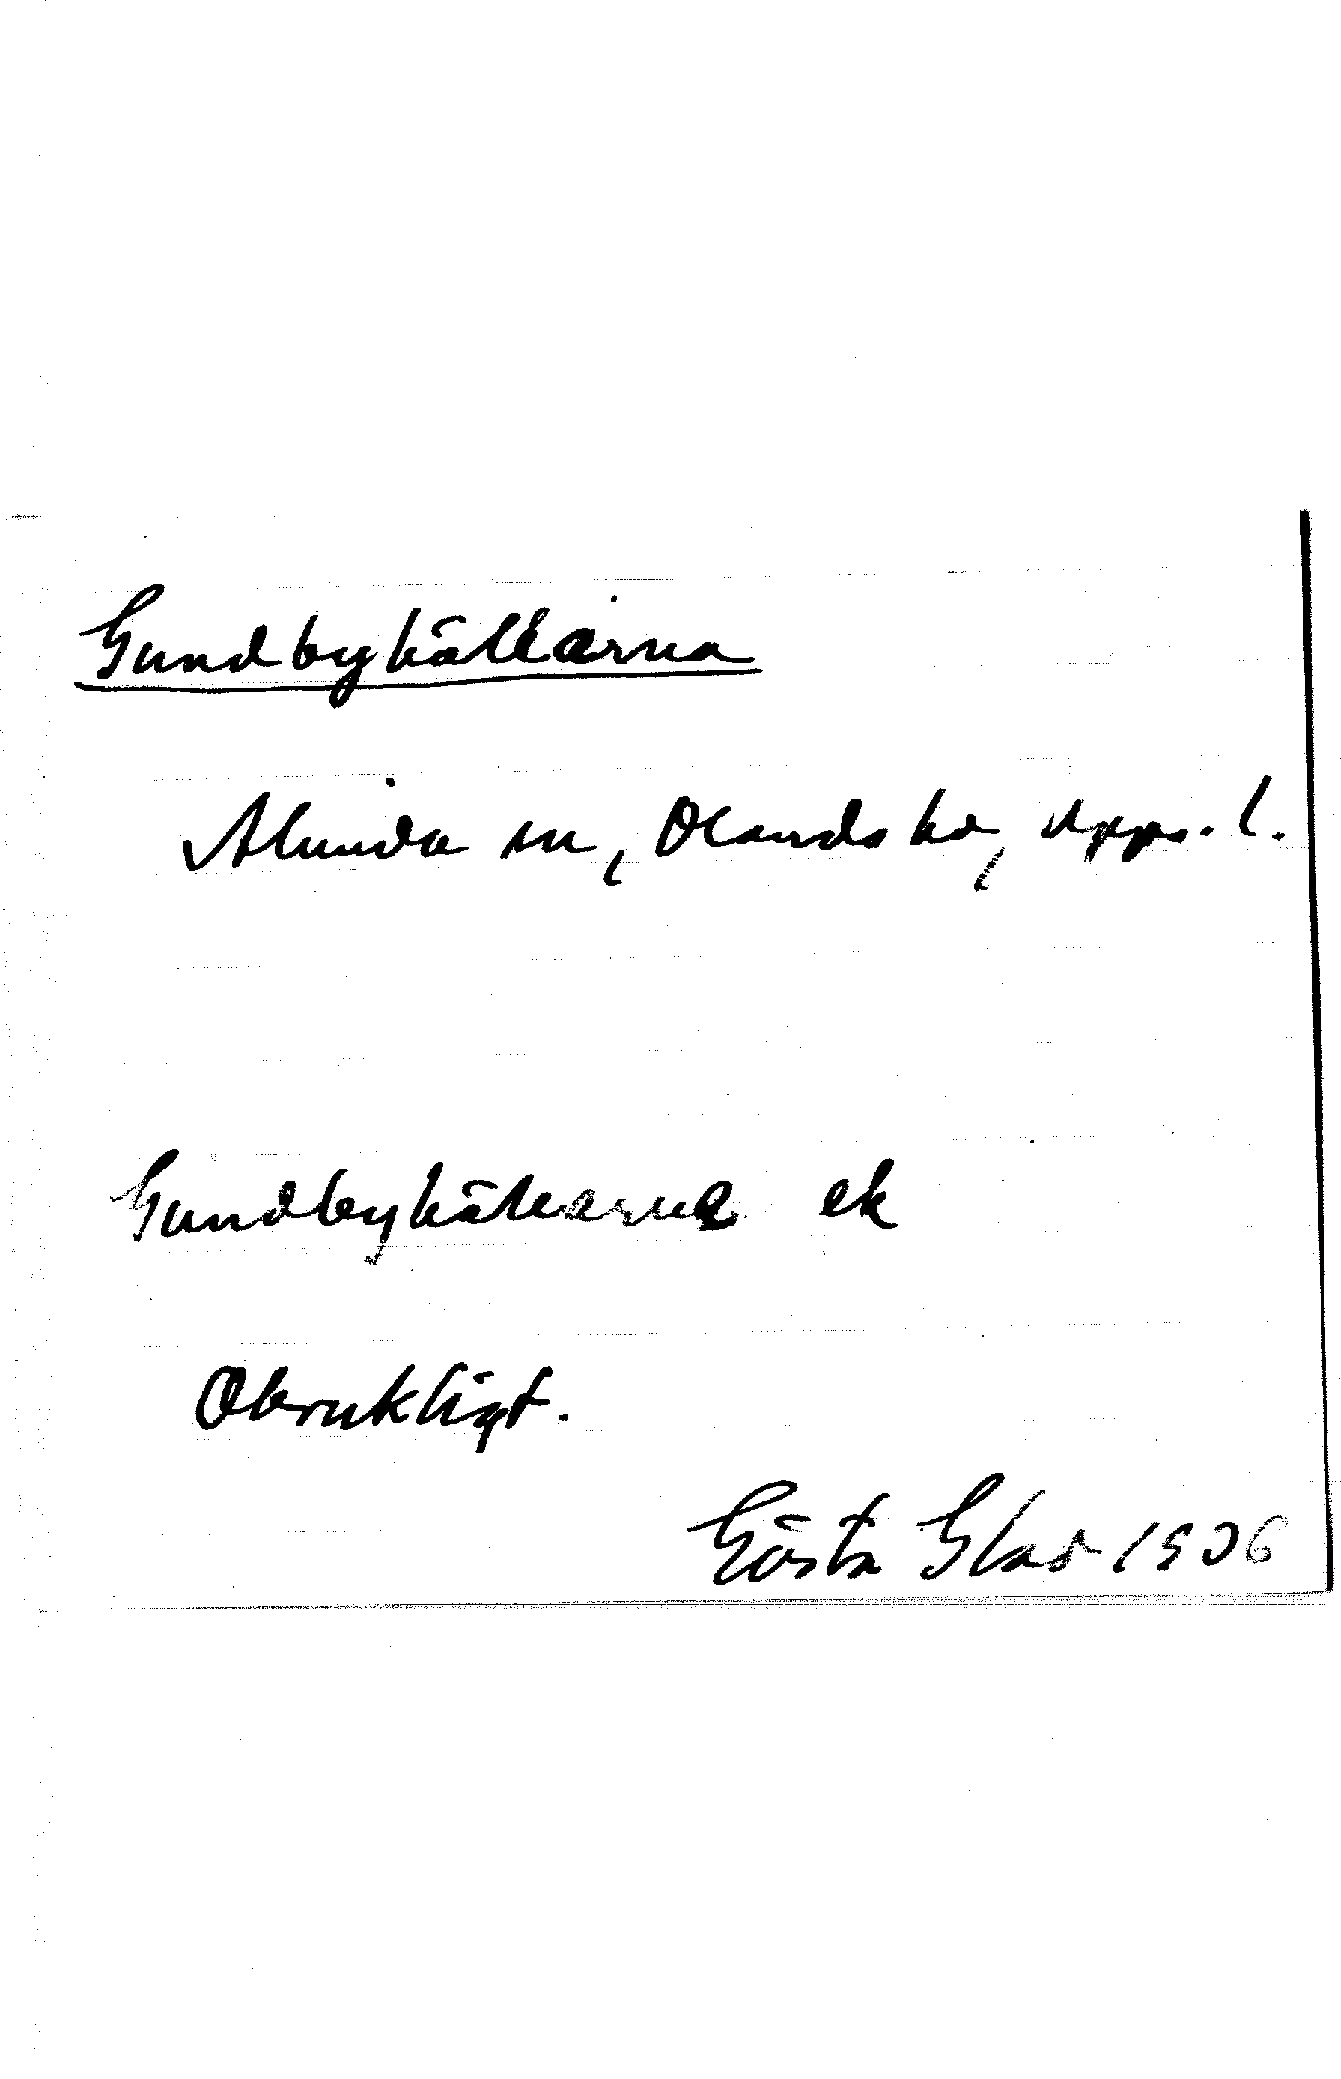 Gundbyhällarna
Alunda sn, Olands hd, Upps. l.
Gundbyhällarna ek
Obrukligt.
Gösta Glad 1936